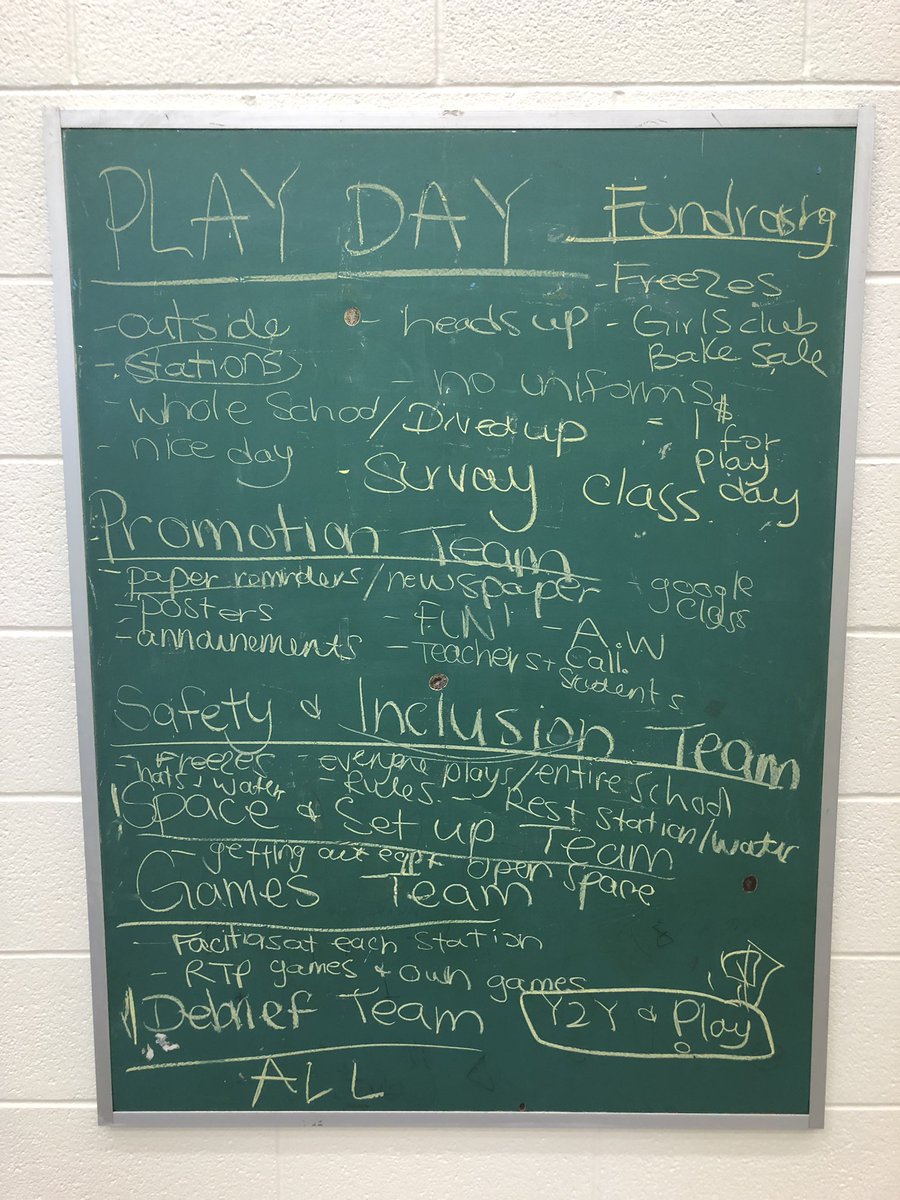 PLAY DAY
Fundrasing
- Freezes
- outside
- heads up
- Girls club
Bake Sale
- Stations
- no uniforms
- whole School / Dived up
= 1$ for
play
day
- nice day
- Survay class
Promotion Team
- paper reminders / newspaper
- google
class
- posters
- FUN!
- A.W
- announements
- Teachers +
Call.
students
Safety & Inclusion Team
- Freezes
- everyone plays / entire school
hats + water
- Rules.
- Rest station / water
Space & Set up Team
- getting out eqpt open space
Games Team
- at each station
- RTP games + own games
Debrief Team
Y2Y & Play
ALL